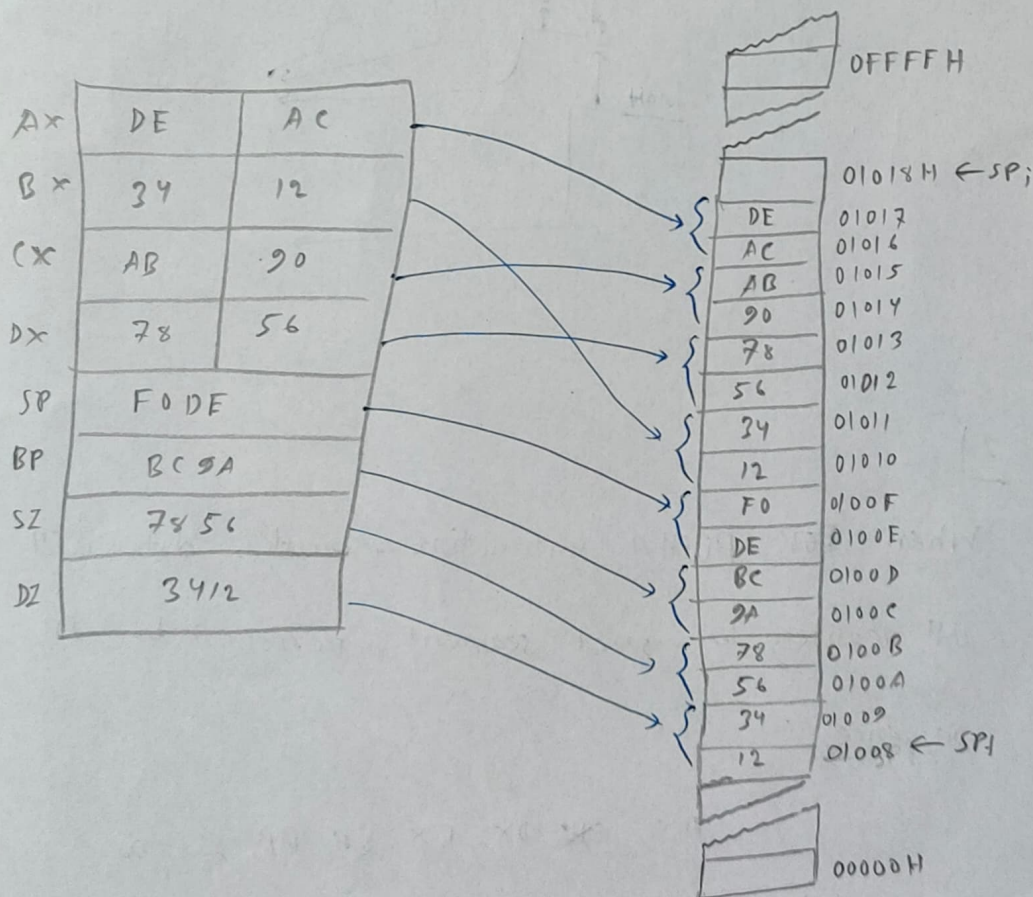 0FFFFH
AX DE AC
BX 34 12
CX AB 90
DX 78 56
SP F0DE
BP BC9A
SI 7856
DI 3412
01018H ← SPi
DE 01017
AC 01016
AB 01015
90 01014
78 01013
56 01012
34 01011
12 01010
F0 0100F
DE 0100E
BC 0100D
9A 0100C
78 0100B
56 0100A
34 01009
12 01008 ← SPf
00000H